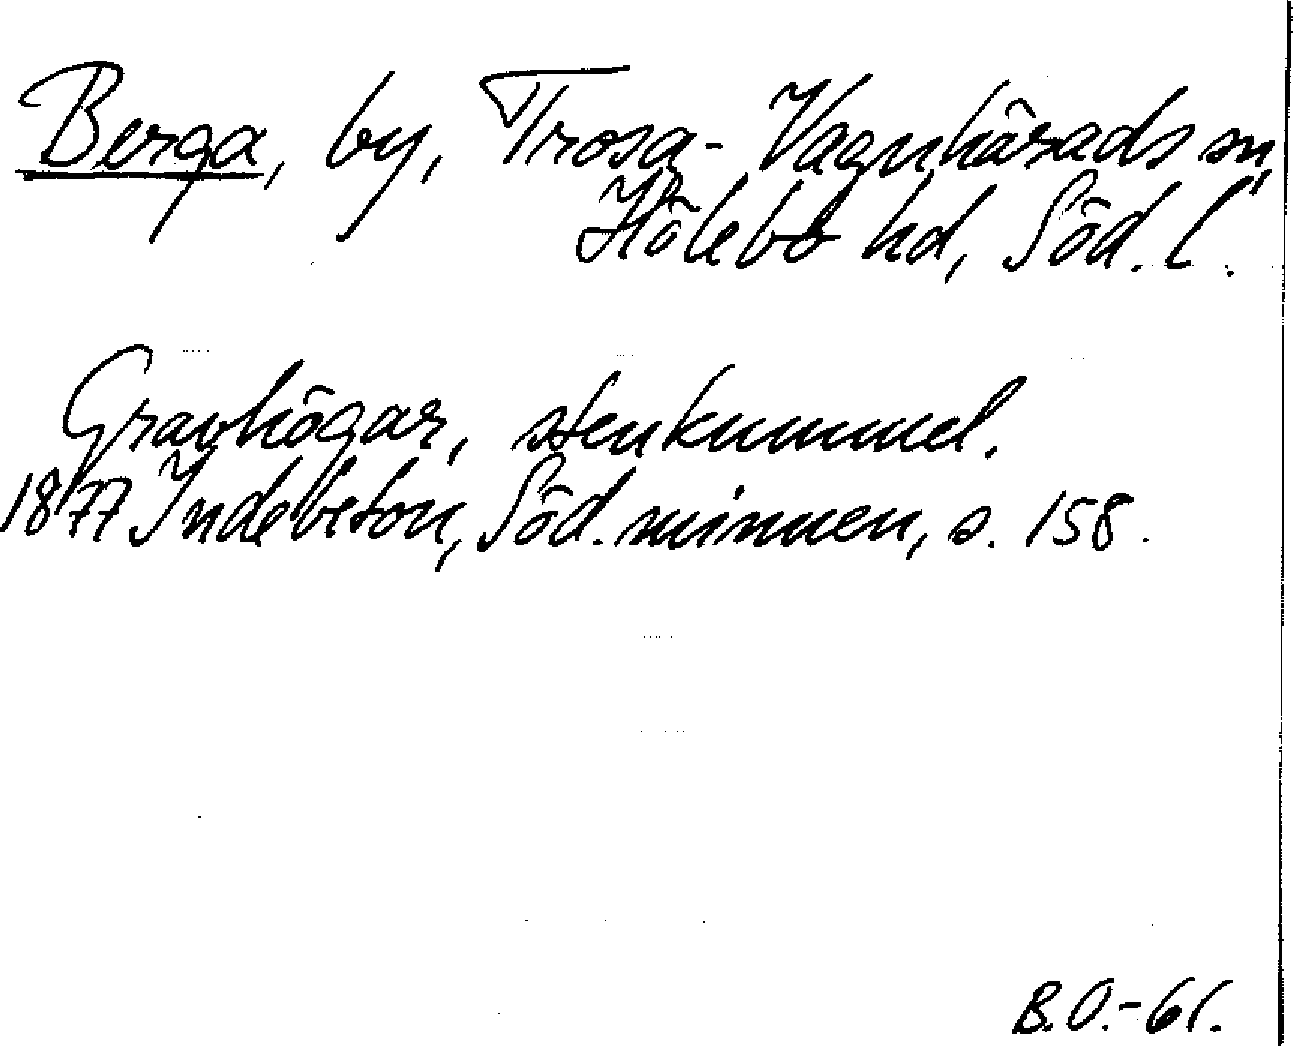 Berga, by, Trosa-Vagnhärads sn,
Hölebo hd, Söd. l.
Gravhögar, stenkummel.
1877 Indebetou, Söd. minnen, s. 158.
B.O.-61.